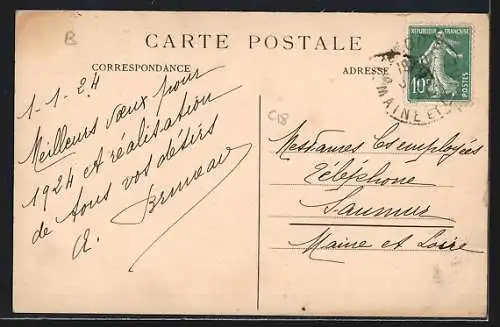 B
CARTE POSTALE
CORRESPONDANCE
ADRESSE
RÉPUBLIQUE FRANÇAISE
10
POSTES
MAINE ET L
C18
1-1-24
Meilleurs vœux pour
1924 et réalisation
de tous vos désirs
A. Bruneau
Mesdames Les employées
Téléphone
Saumur
Maine et Loire